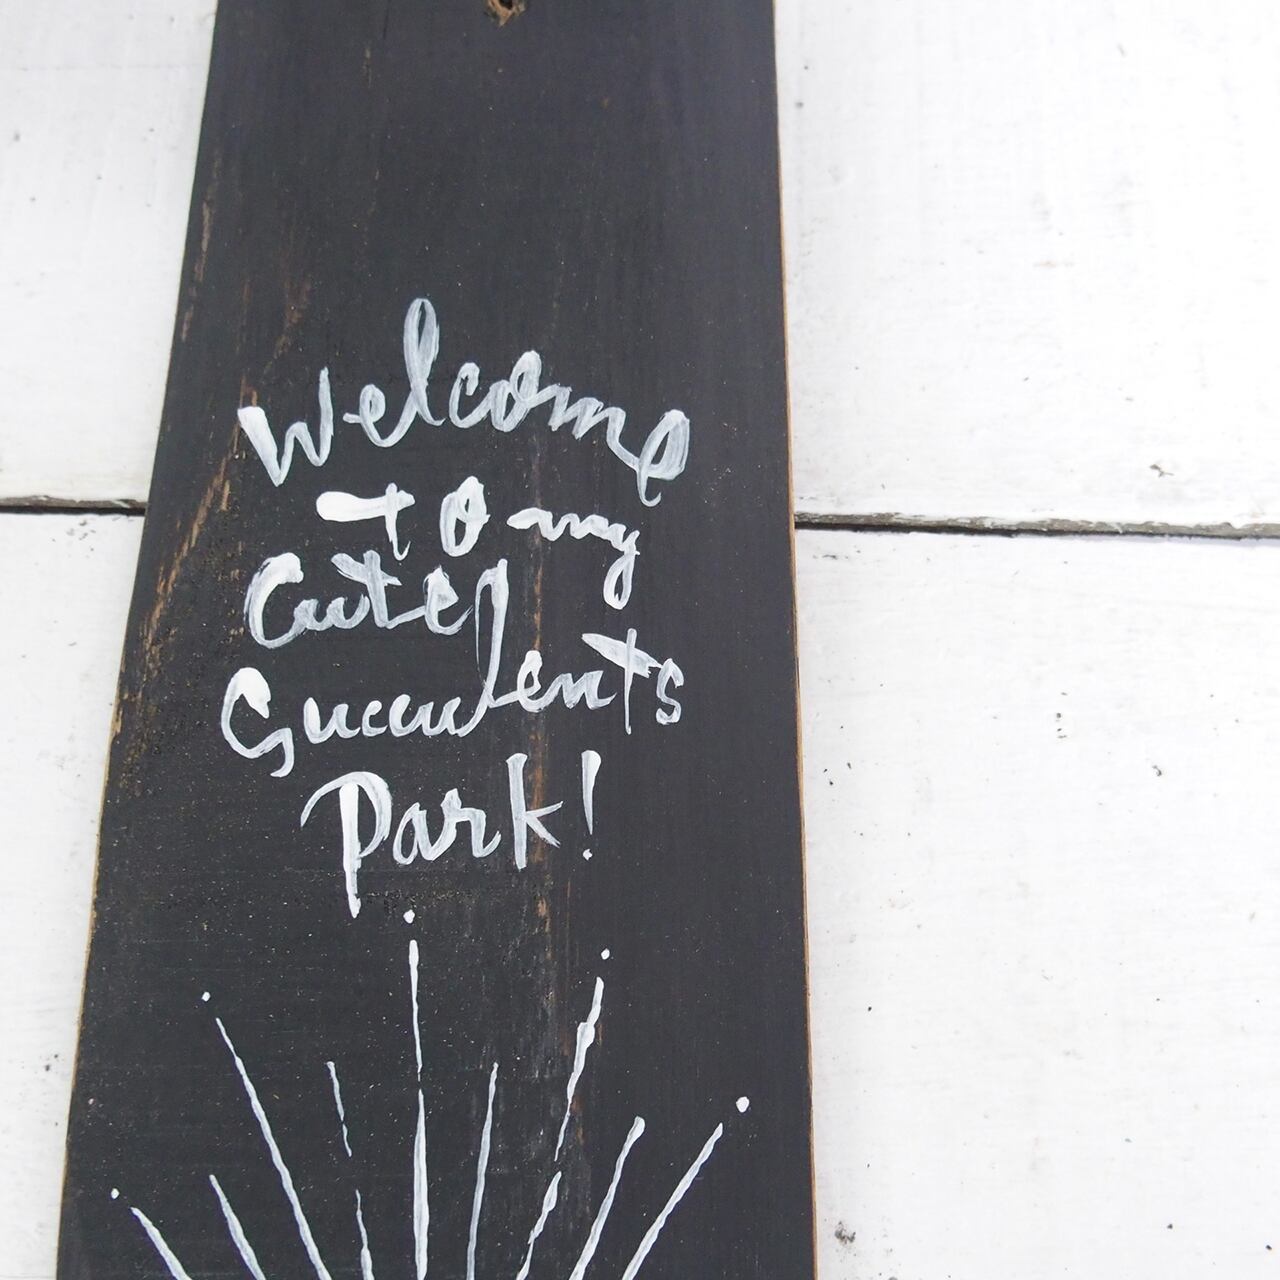 Welcome
to my
Cute
Succulents
Park!